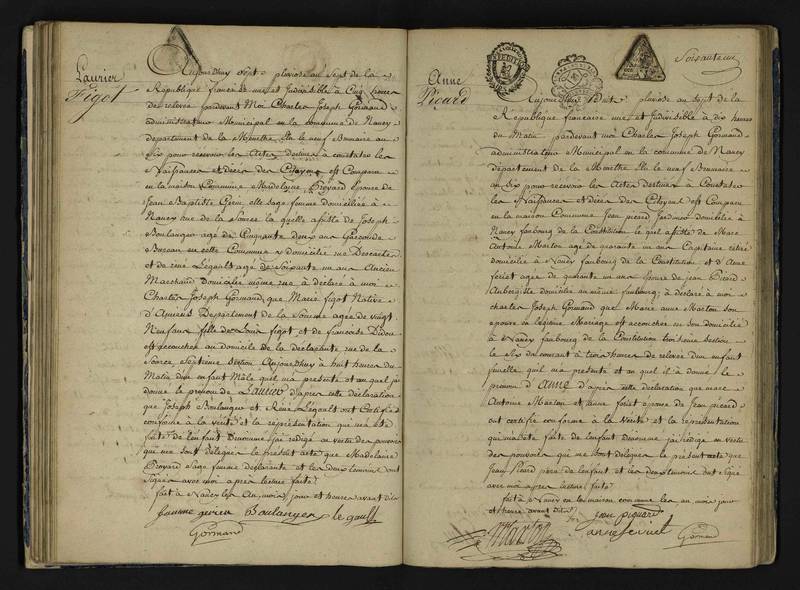 Laurier
Figot
Aujourdhuy Sept pluviose an Sept de la
Republique francaise une et Indivisible à Cinq heures
de relevée pardevant Moi Charles Joseph Gormand
administrateur Municipal en la commune de Nancy
département de la Meurthe Elu le neuf Brumaire an
Six pour recevoir les Actes destinés à constater les
Naissances et décès des Citoyens est Comparue
en la maison Commune Madelaine Broyard Epouse de
Jean Baptiste elle sage femme domiciliée à
Nancy rue de la Source la quelle assistée de Joseph
Boulanger agé de Cinquante deux ans Garcon de
Bureau en cette Commune y domicilié rue Descartes
et de rené Légault agé de Soixante un ans Ancien
Marchand Domicilié même rue à déclaré à moi
Charles Joseph Gormand, que Marie figot Native
d'Amiens Département de la Somme agée de vingt
Neuf ans fille de Louis figot et de francoise Didou
est accouchée au domicile de la déclarante rue de la
Source Septième Section Aujourdhuy à huit heures du
Matin d'un enfant Mâle qu'il m'a présenté et au quel j'ai
donné le prenom de Laurier d'après cette déclaration
que Joseph Boulanger et Réné Légault ont Certifiée
conforme à la verité et la représentation qui m'a été
faite de l'enfant Denommé j'ai redigé en vertu des pouvoirs
qui me sont delegués le present acte que Madelaine
Broyard Sage femme déclarante et les deux temoins ont
Signés avec moi après lecture faite
fait à Nancy les An, mois, jour et heures avant dits
Boulanger le gault
Gormand
Soixante un
Anne
Picard
Aujourdhui huit pluviose an Sept de la
République francaise une et Indivisible à dix heures
du Matin pardevant moi Charles Joseph Gormand
administrateur Municipal en la commune de Nancy
département de la Meurthe Elu le neuf Brumaire
an six pour recevoir les Actes destinés à Constater
les Naissances et décès des Citoyens est Comparu
en la maison Commune Jean picard domicilié à
Nancy faubourg de la Constitution le quel assisté de Marc
Antoine Marton agé de quarante un ans Capitaine retiré
domicilié à Nancy faubourg de la Constitution et d'Anne
feriet agée de quarante un ans épouse de jean Picard
Aubergiste domicilié au même faubourg; à déclaré à moi
charles Joseph Gormand que Marie anne Marton son
epouse en légitime Mariage est accouchée en son domicile
à Nancy faubourg de la Constitution section
le Six du courant à trois heures de relevée d'un enfant
femelle qu'il m'a présenté et au quel il à donné le
prenom d'Anne d'après cette declaration que marc
Antoine Marton et anne feriet epouse de Jean picard
ont certifié conforme à la Vérité et la représentation
qui m'a été faite de l'enfant denommé j'ai rédigé en vertu
des pouvoirs qui me sont delegués le présent acte que
Jean Picard père de l'enfant et les deux temoins ont Signé
avec moi après lecture faite
fait à Nancy en la maison commune les an mois jour
et heure avant dits
jean piquard
Marton
Gormand